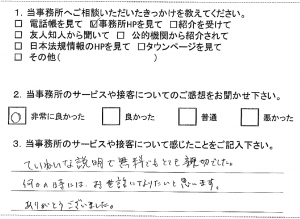 1. 当事務所へご相談いただいたきっかけを教えてください。
□ 電話帳を見て ☑事務所HPを見て □紹介を受けて
□ 友人知人から聞いて □ 公的機関から紹介されて
□ 日本法規情報のHPを見て □タウンページを見て
□ その他( )
2. 当事務所のサービスや接客についてのご感想をお聞かせ下さい。
非常に良かった 良かった 普通 悪かった
3. 当事務所のサービスや接客について感じたことをご記入下さい。
ていねいな説明で無料でもとても親切でした。
何かの時には、お世話になりたいと思います。
ありがとうございました。